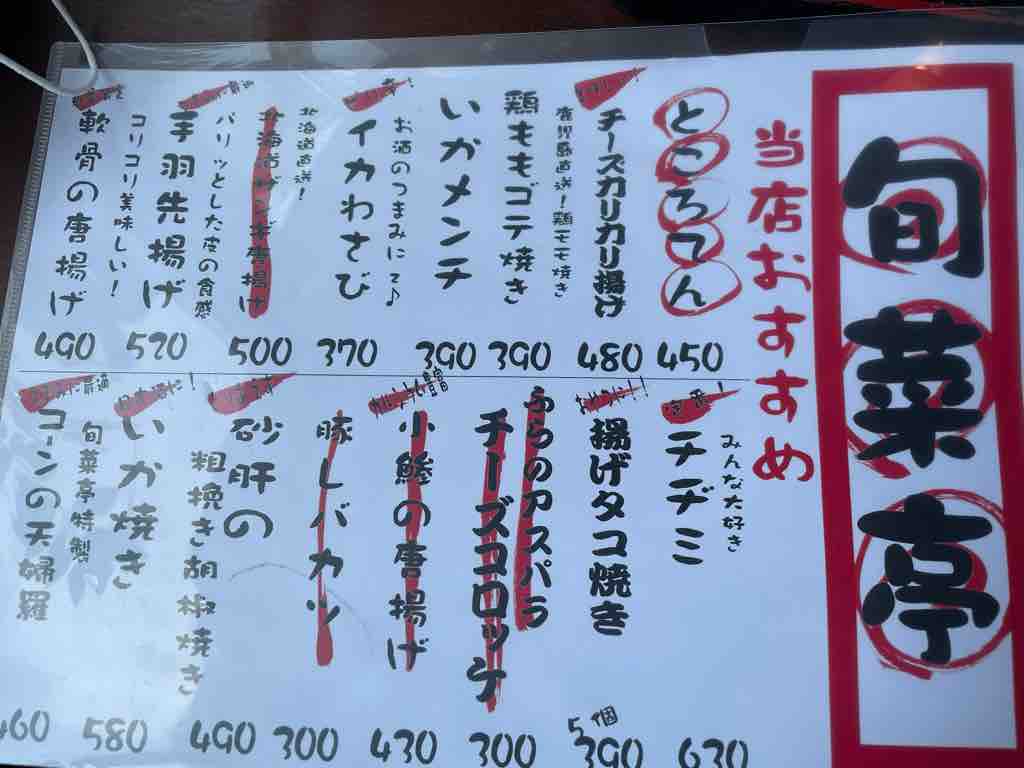 旬菜亭
当店おすすめ
ところてん
450
チーズカリカリ揚げ
480
鹿児島直送！鶏モモ焼き
鶏ももゴテ焼き
390
いかメンチ
390
お酒のつまみにて♪
イカわさび
370
北海道直送！
北海道ザンギ唐揚げ
500
パリッとした皮の食感
手羽先揚げ
520
コリコリ美味しい！
軟骨の唐揚げ
490
みんな大好き
定番！
チヂミ
630
揚げタコ焼き
5個
390
ふらのアスパラ
チーズコロッケ
300
小鯵の唐揚げ
430
豚レバカツ
300
砂肝の
粗挽き胡椒焼き
490
いか焼き
580
旬菜亭特製
コーンの天婦羅
460